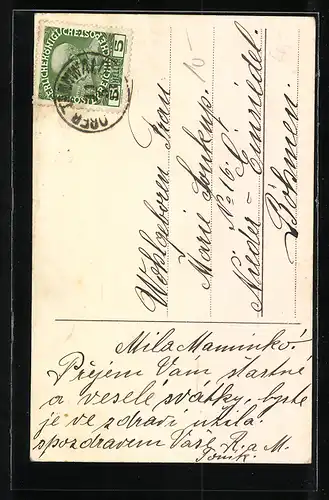 KAISERLICHE KÖNIGLICHE ÖSTERREICHISCHE POST
5 HELLER 5
OBER
Wohlgeboren Frau
Marie Soukup.
No 16.
Nieder-Einsiedel.
Böhmen.
10-
Mila Maminko
Přejem Vam šťastné
a veselé svátky, byste
je ve zdraví užila.
spozdravem Vaše R. a M.
Toník.